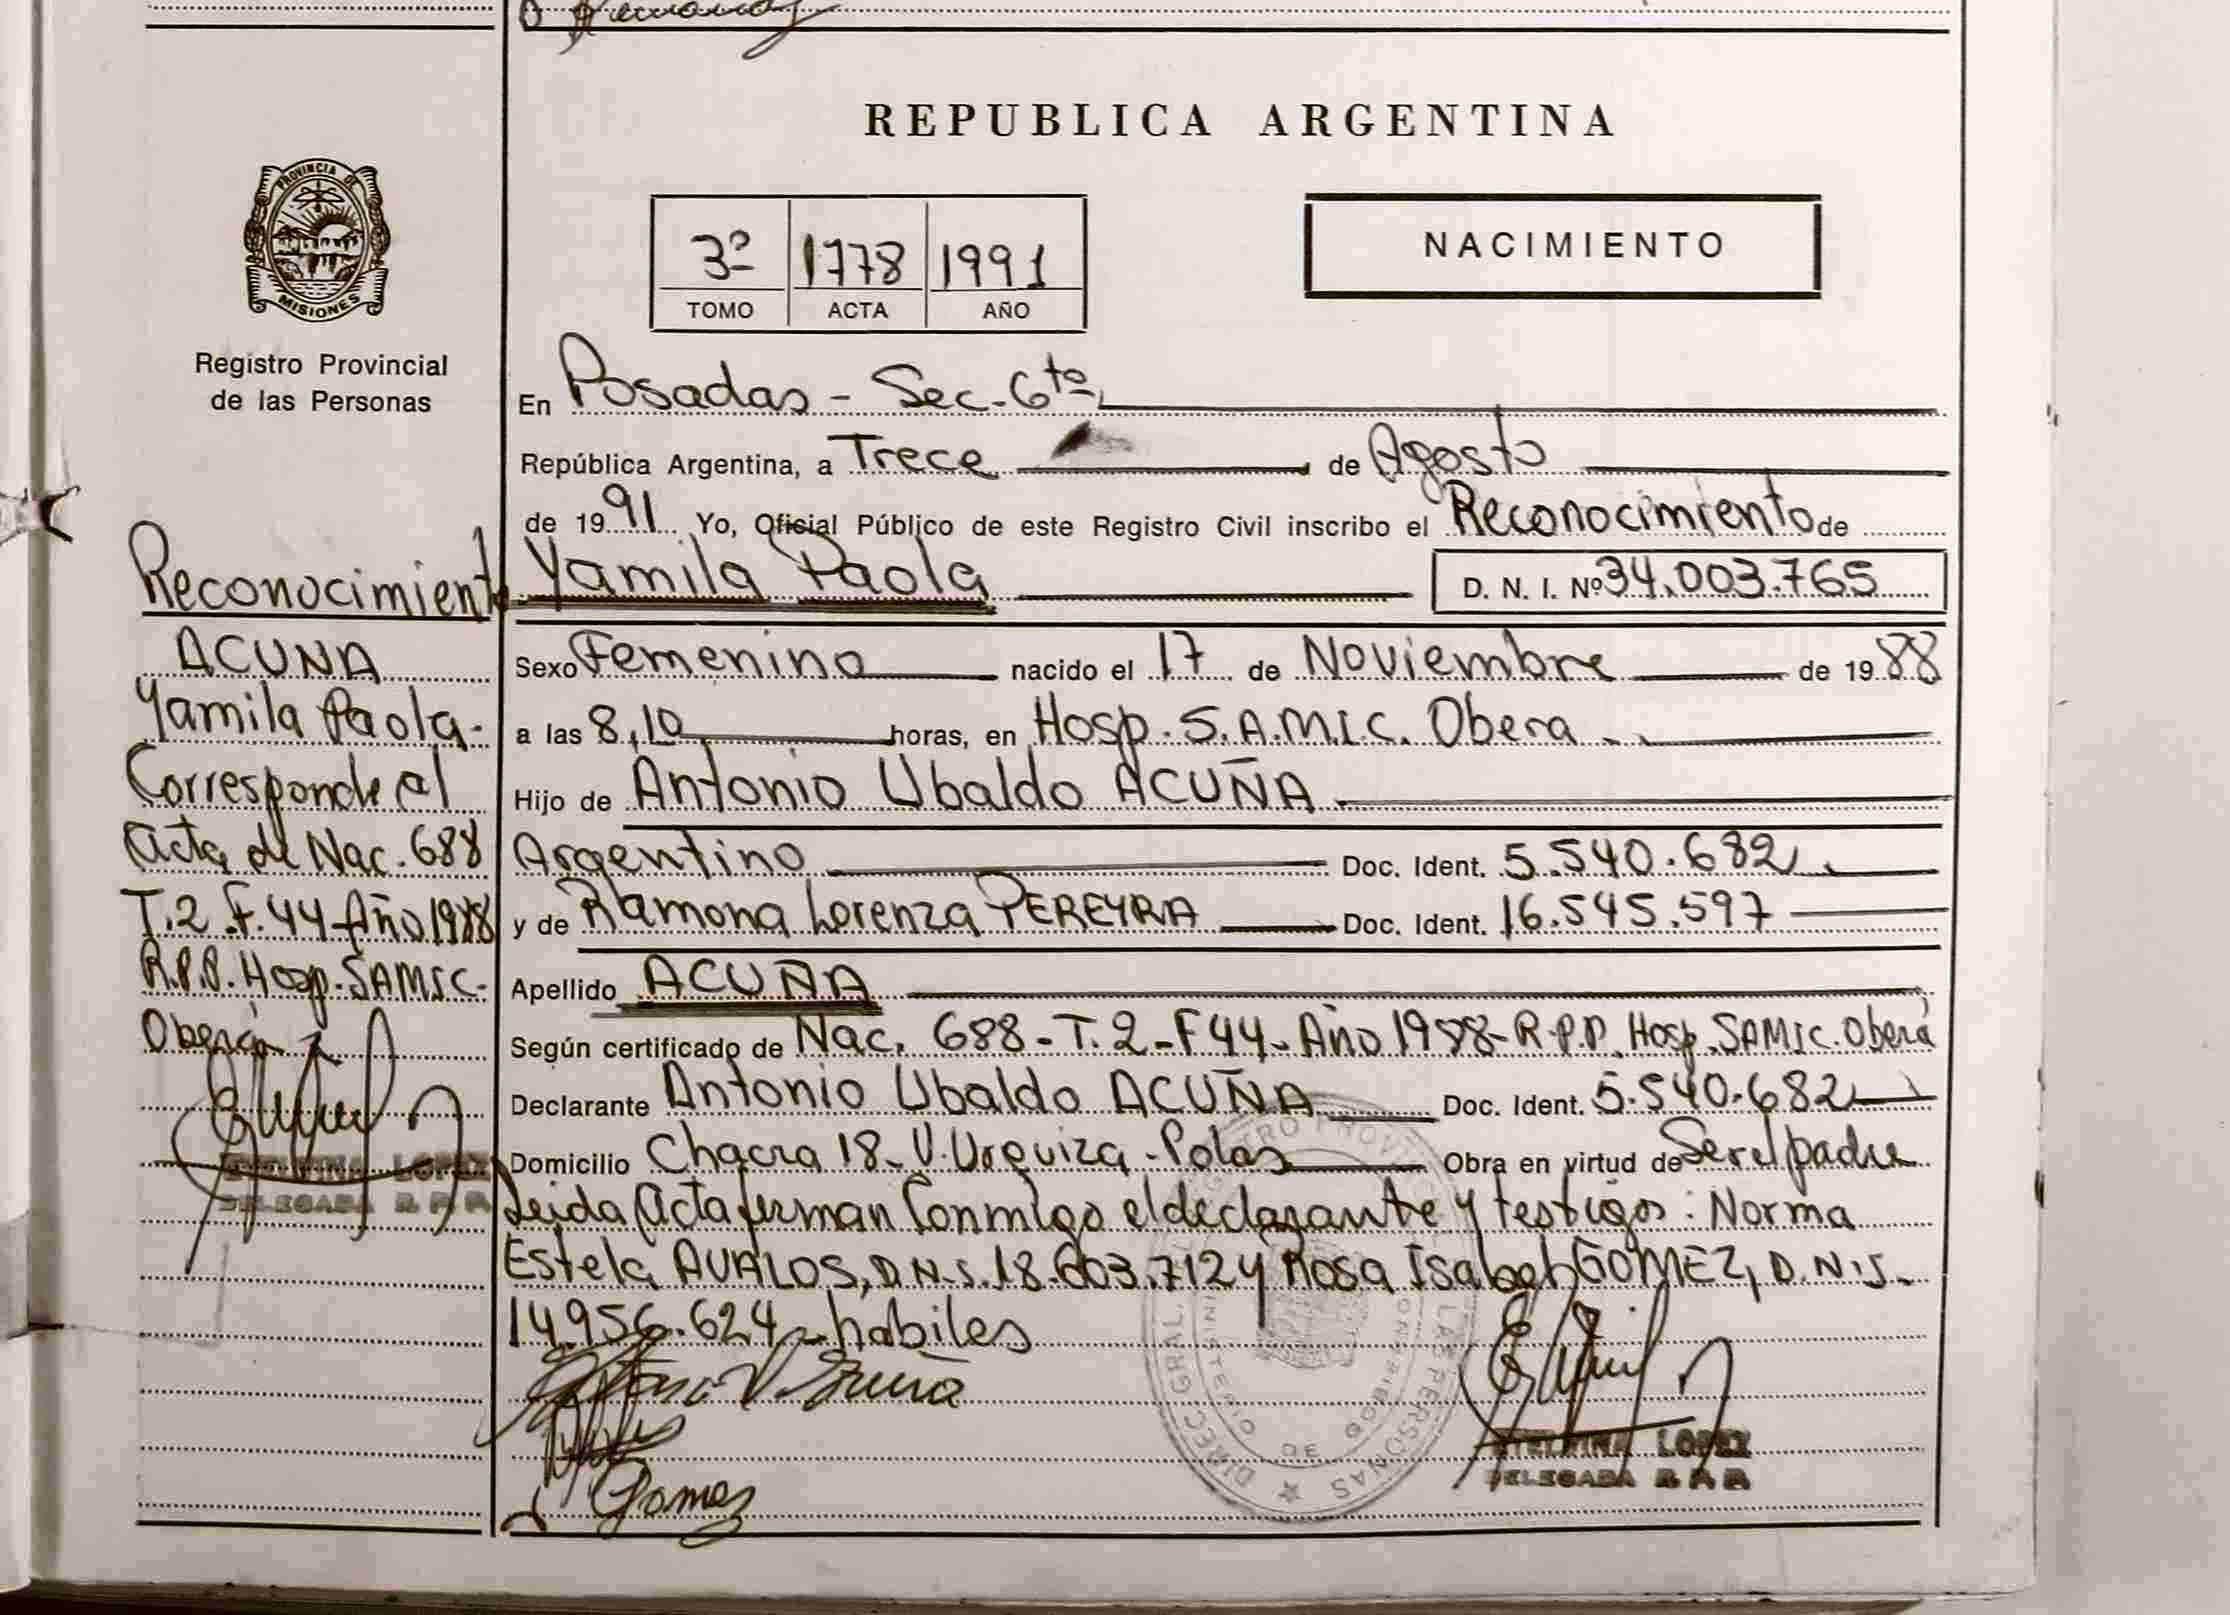 REPUBLICA ARGENTINA
PROVINCIA DE
MISIONES
Registro Provincial
de las Personas
3º 1778 1991
TOMO ACTA AÑO
NACIMIENTO
En Posadas - Sec. 6ta
República Argentina, a Trece de Agosto
de 1991 Yo, Oficial Público de este Registro Civil inscribo el Reconocimiento de
Yamila Paola D. N. I. Nº 34.003.765
Sexo Femenino nacido el 17 de Noviembre de 1988
a las 8,10 horas, en Hosp. S.A.M.I.C. Obera
Hijo de Antonio Ubaldo ACUÑA
Argentino Doc. Ident. 5.540.682
y de Ramona Lorenza PEREYRA Doc. Ident. 16.545.597
Apellido ACUÑA
Según certificado de Nac. 688 - T. 2 - F 44 - Año 1988 - R.P.P. Hosp. SAMIC. Oberá
Declarante Antonio Ubaldo ACUÑA Doc. Ident. 5.540.682
Domicilio Chacra 18 - V. Urquiza - Pdas Obra en virtud de Ser el padre
Leida Acta firman Conmigo el declarante y testigos: Norma
Estela AVALOS, D.N.I. 18.603.712 y Rosa Isabel GOMEZ, D.N.I.
14.956.624 - habiles
Gomez
LOPEZ
DELEGADA R P P
Reconocimiento
ACUÑA
Yamila Paola -
Corresponde al
Acta de Nac. 688
T. 2 F. 44 Año 1988
R.P.P. Hosp. SAMIC -
Oberá
LOPEZ
DELEGADA R P P